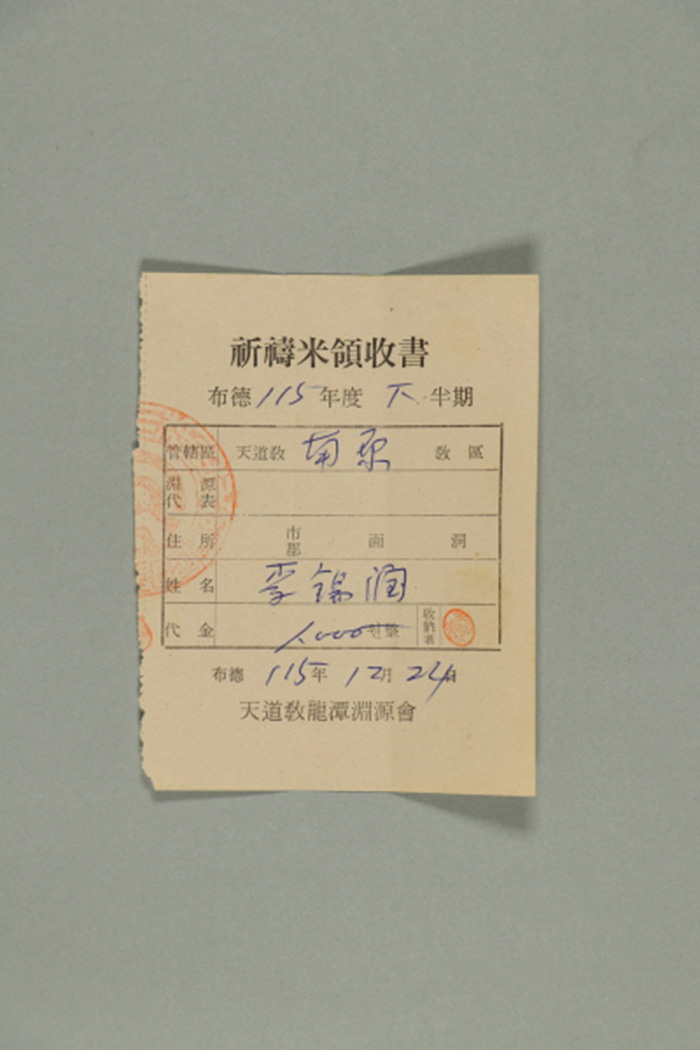 祈禱米領收書
布德 115 年度 下 半期
管轄區 天道敎 南原 敎區
淵源代表
住所 市郡 面 洞
姓名 李錫潤
代金 1,000 원整 收納者
布德 115年 12月 24日
天道敎龍潭淵源會